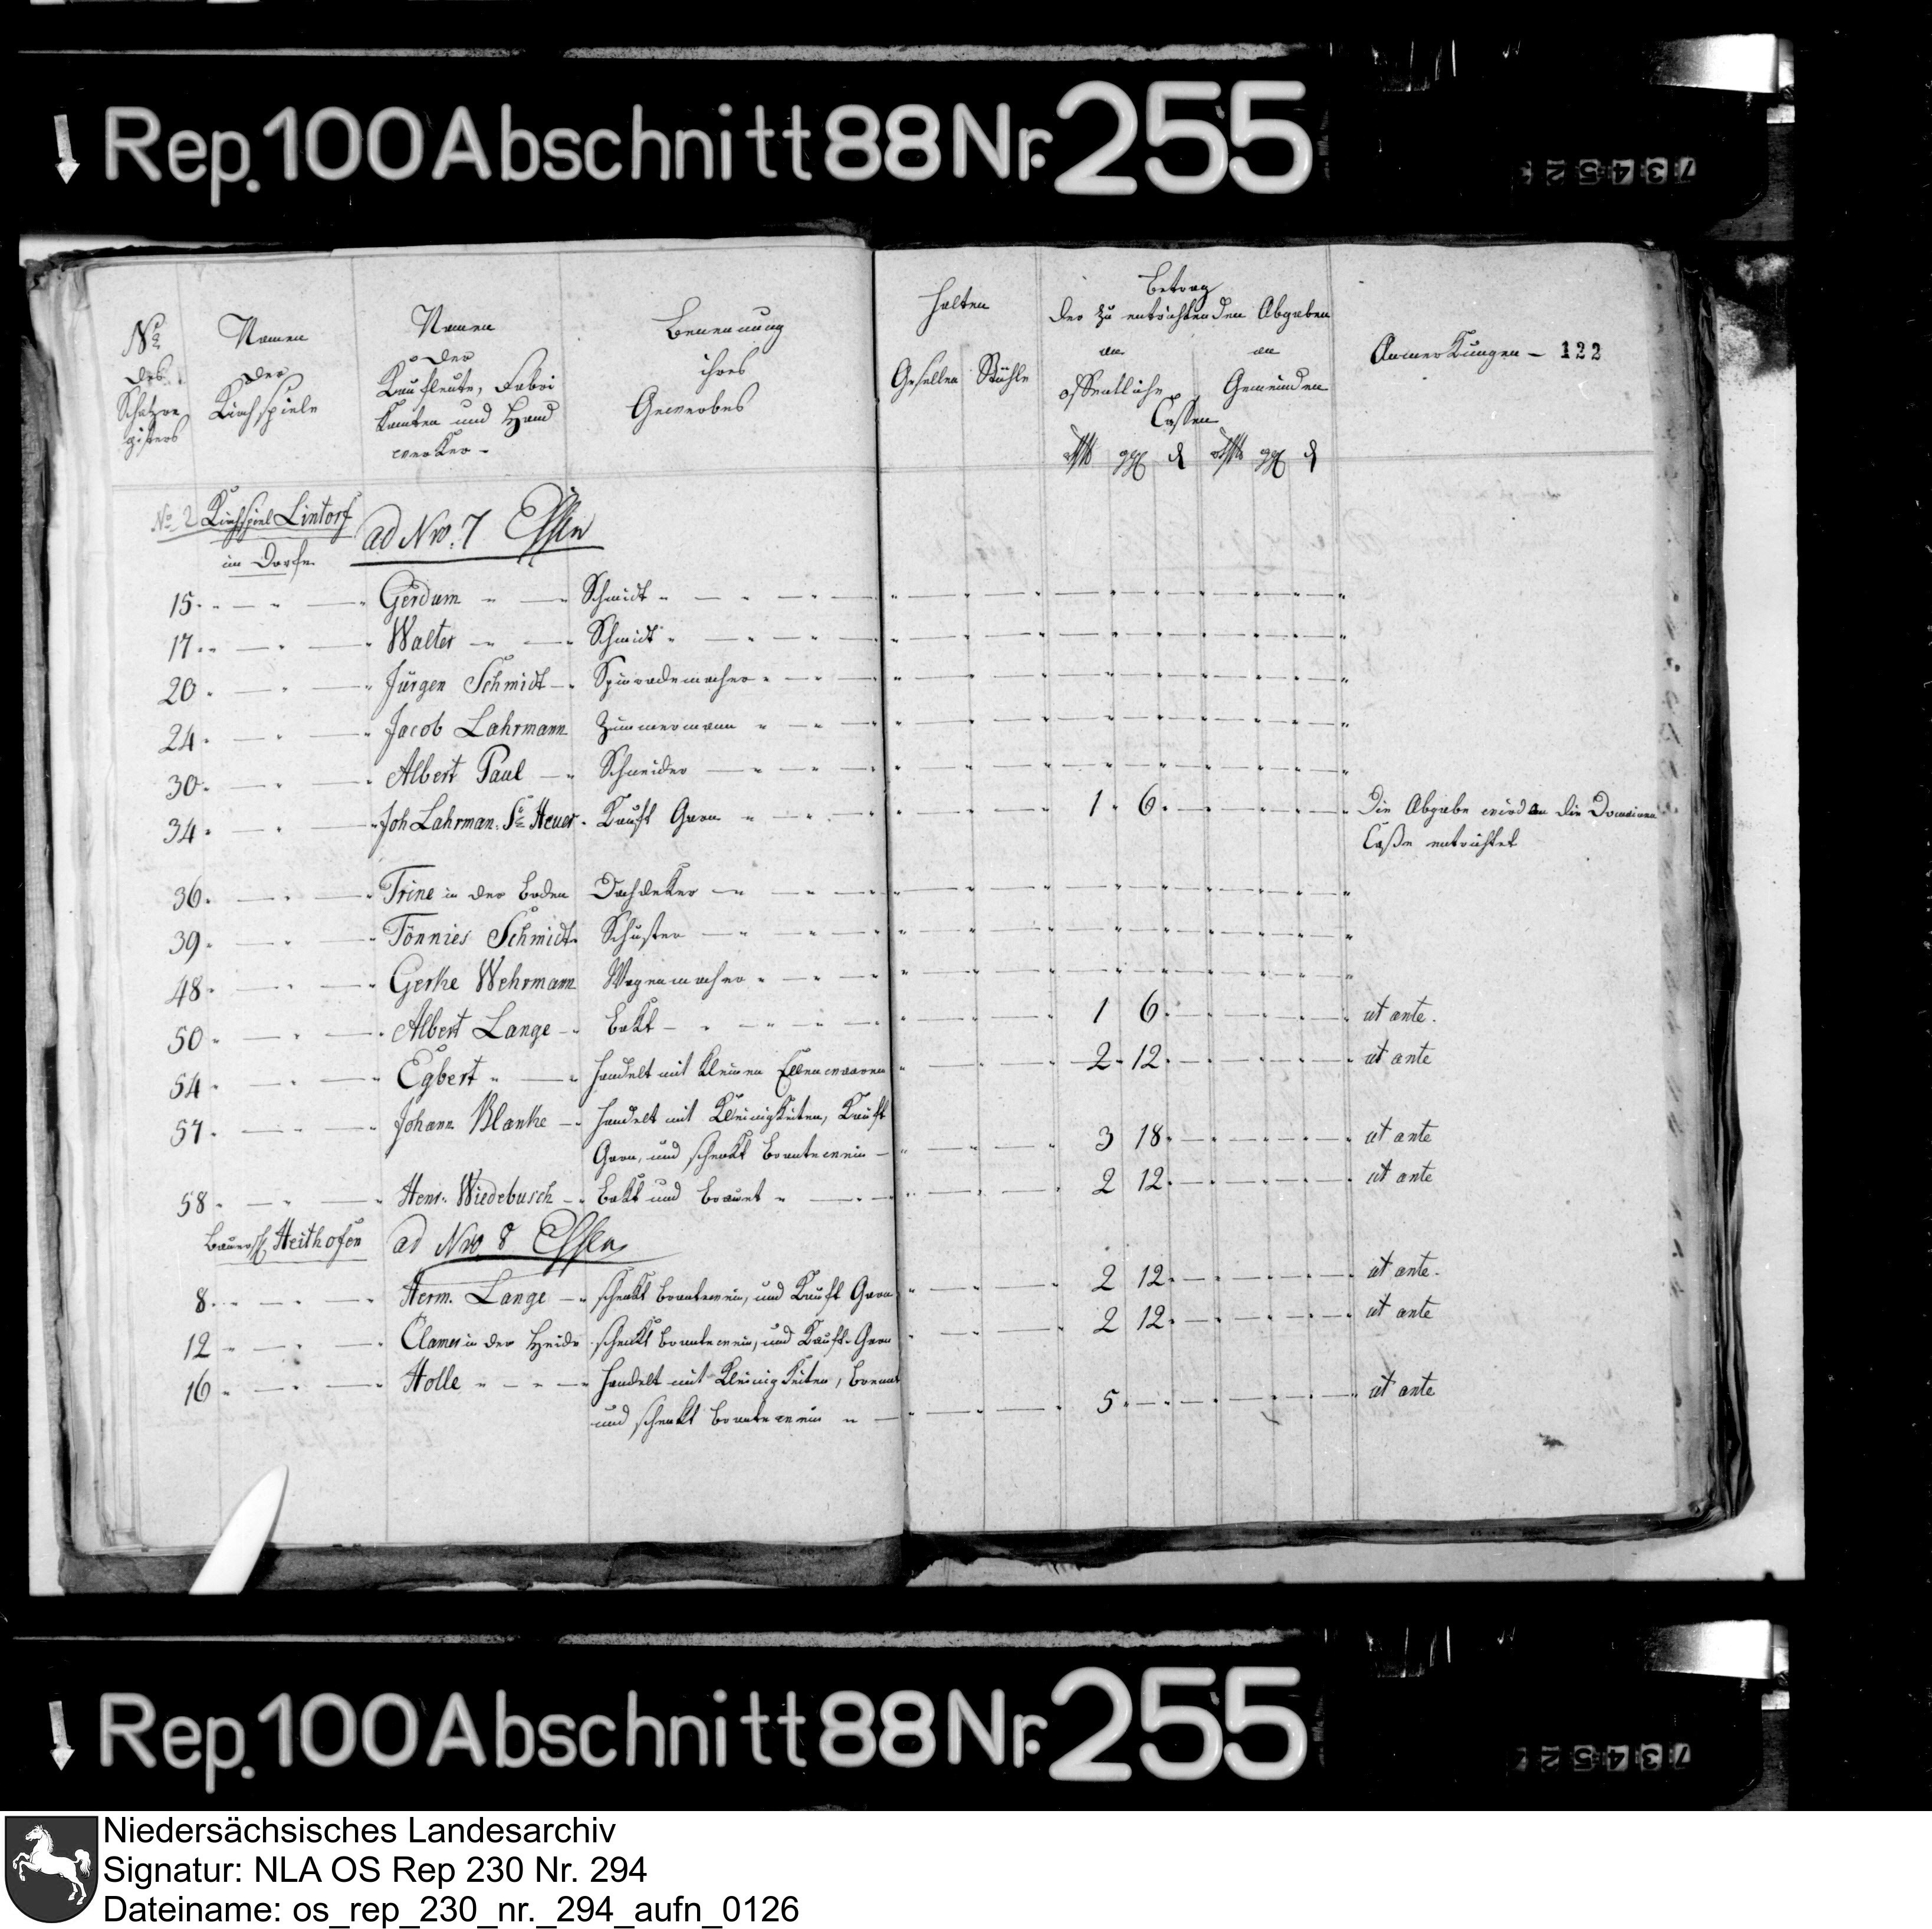 Rep. 100 Abschnitt 88 Nr. 255
No des Schatzre gisters
Namen der Kirchspiele
Namen der Kaufleute, Fabri kanten und Hand werker -
Benennung ihres Gewerbes
halten
Gesellen Stühle
Betrag
der zu entrichtenden Abgaben
an öffentliche an Gemeinden
Cassen
Anmerkungen - 122
No 2 Kirchspiel Lintorf ad Nro. 7 Essen
im Dorfe
15. Gerdum Schmidt
17. Walter Schmidt
20. Jürgen Schmidt Spinrademacher
24. Jacob Lahrmann Zimmermann
30. Albert Paul Schneider
34. Joh Lahrman. Heuer. Kauft Garn 1 6 Die Abgabe wird an die Domainen
Casse entrichtet
36. Trine in der Boden Dachdeker
39. Tönnies Schmidt Schuster
48. Gerke Wehrmann Wagenmacher
50. Albert Lange Bakt 1 6 ut ante.
54. Egbert handelt mit kleinen Ellenwaaren 2 12 ut ante
57. Johann Blanke handelt mit Kleinigkeiten, Kauft
Garn, und schenkt Brantewein 3 18 ut ante
58. Henr. Wiedebusch Bakt und Brauet 2 12 ut ante
Bauersch Heithofen ad Nro 8 Essen
8. Herm. Lange schenkt Brantewein, und Kauft Garn 2 12 ut ante.
12 Clamer in der Heide schenkt Brantewein, und Kauft Garn 2 12 ut ante
16 Holle handelt mit Kleinigkeiten, Brennt
und schenkt Brantewein 5 ut ante
Rep. 100 Abschnitt 88 Nr. 255
Niedersächsisches Landesarchiv
Signatur: NLA OS Rep 230 Nr. 294
Dateiname: os_rep_230_nr._294_aufn_0126